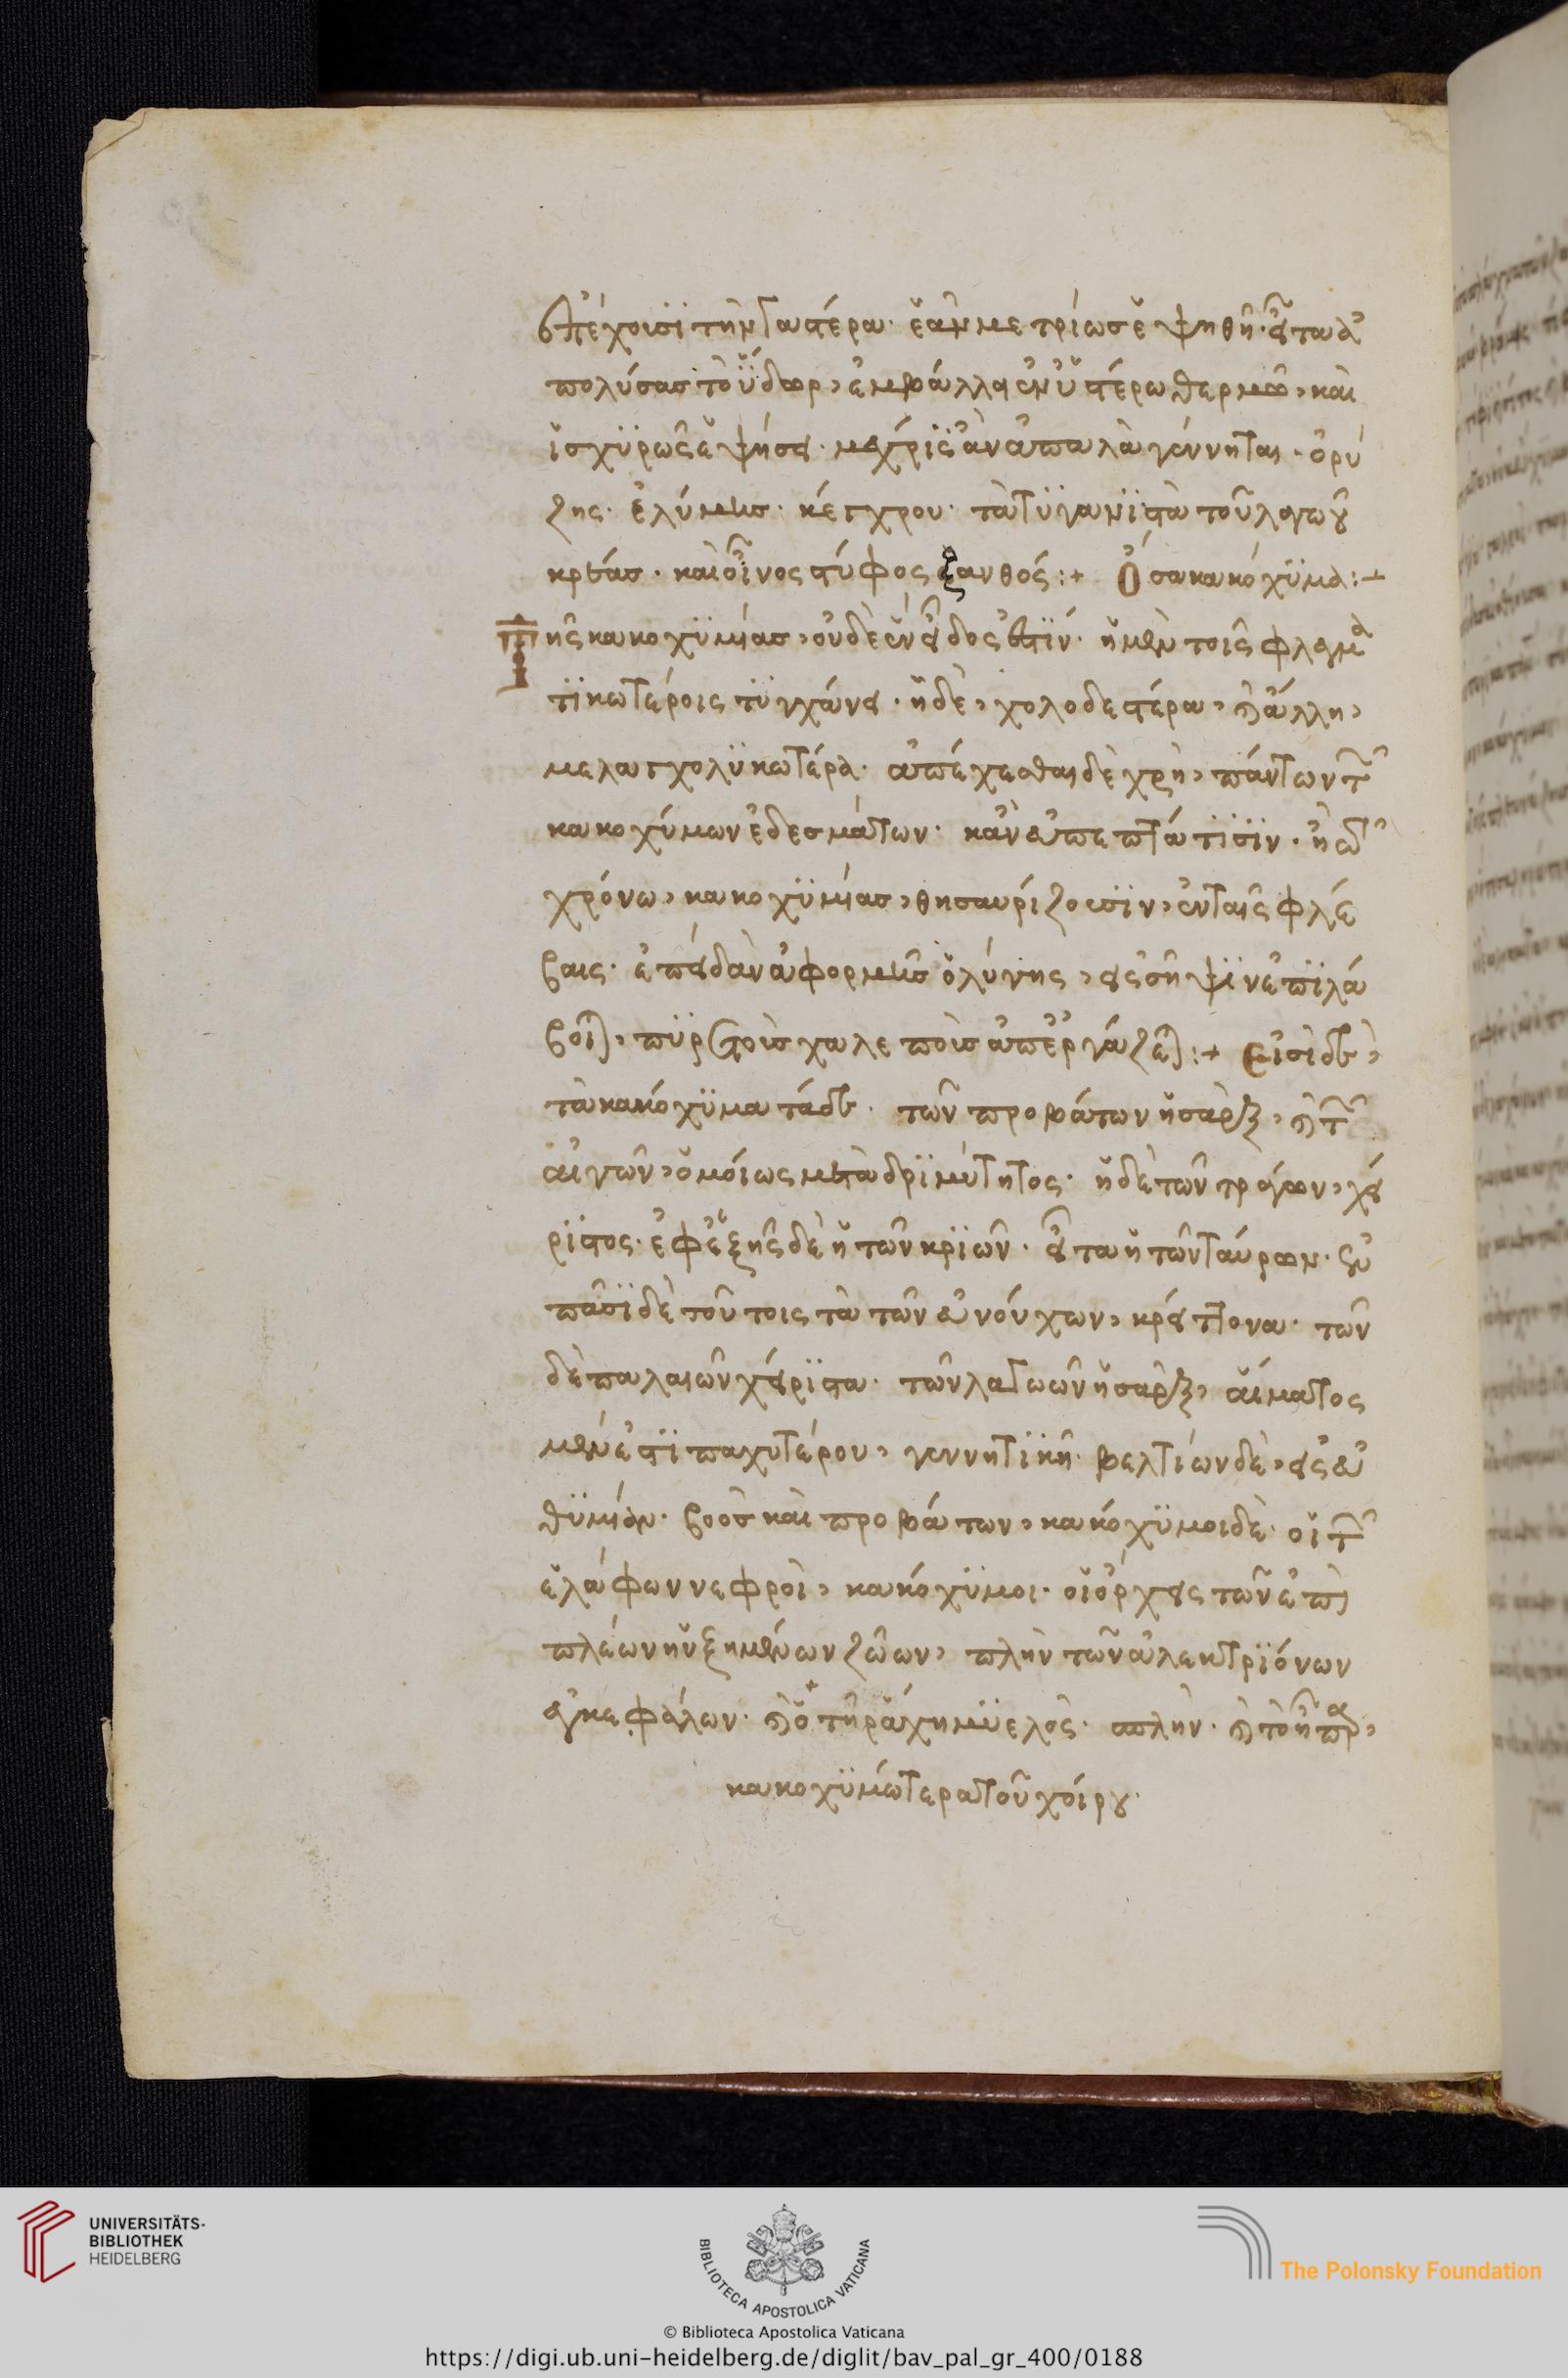 ἐπέχουσϊ τὴν γαστέρα· ἐὰν μετρίως ἑψηθῆ· εἶτα ἀ
πολύσας τὸ ὕδωρ, ἐμβάλλει ἐν ὑστέρω θερμῶ, καὶ
ἰσχϋρῶς ἑψήσει· μέχρϊς ἂν ἁπαλὰ γέννηται· ὀρύ
ζης· ἐλύμου· κέγχρου· τὰ τϋγανϊστὰ τοῦ λαγωοῦ
κρέας· καὶ οἶνος στύφος ξανθός :+ Ὅσα κακόχϋμα :+
Τῆς κακοχϋμίας, οὐδὲ ἓν εἶδος ἐστΐν· ἡ μὲν τοῖς φλεγμα
τϊκωτέροις τϋγχάνει· ἡ δὲ, χολοδεστέρα, καὶ ἄλλη,
μελαγχολϋκωτέρα· ἀπέχεσθαι δὲ χρὴ, πάντων τῶν
κακοχύμων ἐδεσμάτων· κἂν εὔπεπτά τϊσϊν· ἢ ἐν τῶ
χρόνω, κακοχϋμίας, θησαυρίζουσϊν, ἐν ταῖς φλέ
βαις· ἐπειδὰν ἀφορμῆς ὀλύγης, εἰς σῆψϊν ἐπϊλά
βοιντο, πϋρετοὺς χαλεποὺς ἀπεργάζεται :+ Εἰσὶ δὲ,
τὰ κακόχϋμα τάδε· τῶν προβάτων ἡ σὰρξ, καὶ τῶν
αἰγῶν, ὁμοίως μετὰ δρϊμύτητος· ἡ δὲ τῶν τράγων, χεί
ρϊστος· ἐφεξῆς δὲ ἡ τῶν κρϊῶν· εἶτα ἡ τῶν ταύρων· ἐν
πᾶσϊ δὲ τούτοις τὰ τῶν εὐνούχων, κρείττονα· τῶν
δὲ παλαιῶν χείρϊστα· τῶν λαγωῶν ἡ σὰρξ, αἵματος
μέν ἐστϊ παχυτέρου, γεννητϊκὴ· βελτίων δὲ, εἰς εὐ
θϋμίαν· βοὸς καὶ προβάτων, κακόχϋμοι δὲ· οἱ τῶν
ἐλάφων νεφροὶ, κακόχϋμοι· οἱ ὄρχεις τῶν ἐπὶ
πλέων ηὐξημένων ζώων, πλὴν τῶν ἀλεκτρϊόνων
ἐγκεφάλων· καὶ ὁ τῆ ράχη μϋελὸς· σπλὴν· καὶ τὸ ἧπαρ,
κακοχϋμώτερα τοῦ χοίρου·
UNIVERSITÄTS-
BIBLIOTHEK
HEIDELBERG
BIBLIOTECA APOSTOLICA VATICANA
The Polonsky Foundation
© Biblioteca Apostolica Vaticana
https://digi.ub.uni-heidelberg.de/diglit/bav_pal_gr_400/0188